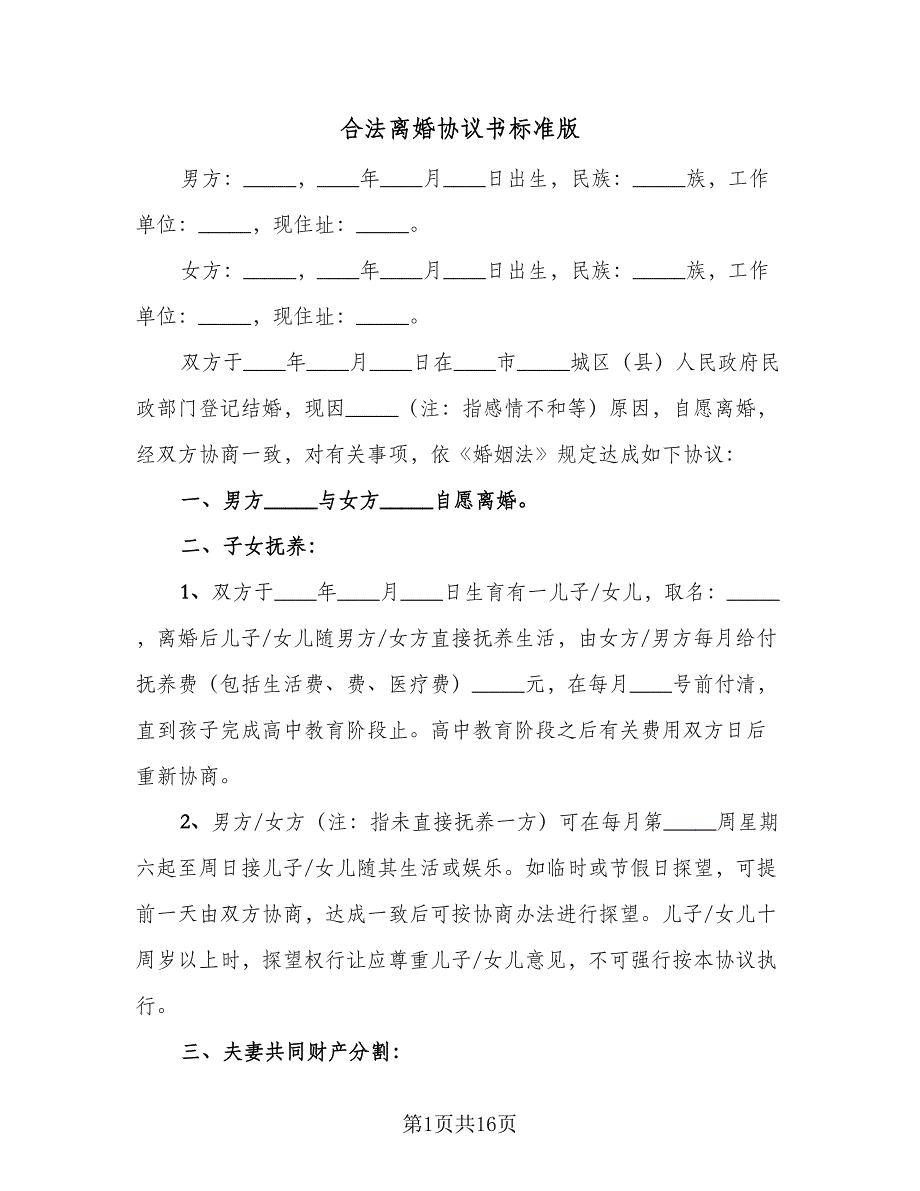 合法离婚协议书标准版
男方：_____，____年____月____日出生，民族：_____族，工作
单位：_____，现住址：_____。
女方：_____，____年____月____日出生，民族：_____族，工作
单位：_____，现住址：_____。
双方于____年____月____日在____市_____城区（县）人民政府民
政部门登记结婚，现因_____（注：指感情不和等）原因，自愿离婚，
经双方协商一致，对有关事项，依《婚姻法》规定达成如下协议：
一、男方_____与女方_____自愿离婚。
二、子女抚养：
1、双方于____年____月____日生育有一儿子/女儿，取名：_____
，离婚后儿子/女儿随男方/女方直接抚养生活，由女方/男方每月给付
抚养费（包括生活费、费、医疗费）_____元，在每月____号前付清，
直到孩子完成高中教育阶段止。高中教育阶段之后有关费用双方日后
重新协商。
2、男方/女方（注：指未直接抚养一方）可在每月第_____周星期
六起至周日接儿子/女儿随其生活或娱乐。如临时或节假日探望，可提
前一天由双方协商，达成一致后可按协商办法进行探望。儿子/女儿十
周岁以上时，探望权行让应尊重儿子/女儿意见，不可强行按本协议执
行。
三、夫妻共同财产分割：
第1页共16页